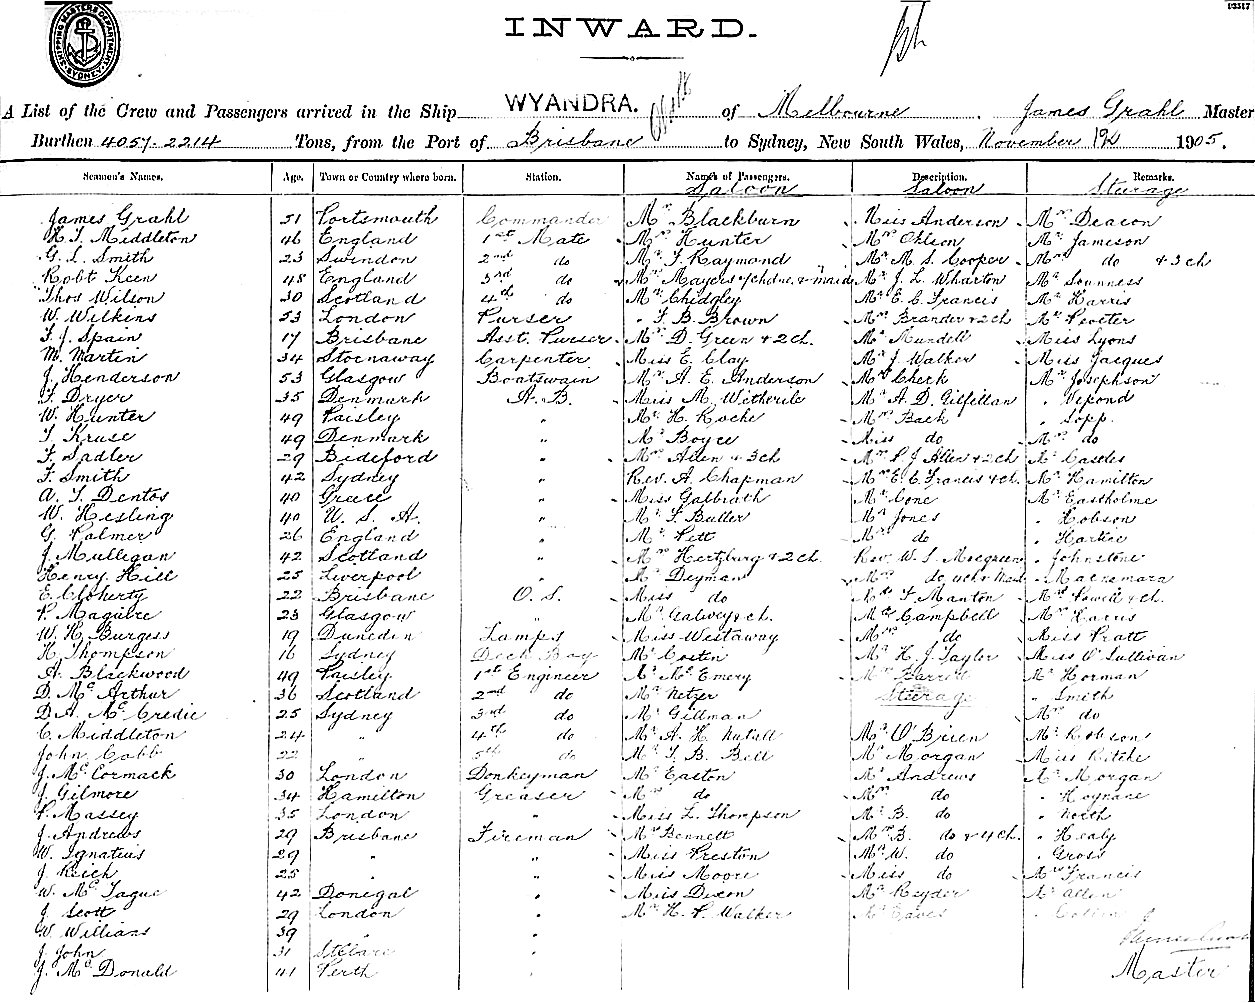 SHIPPING MASTERS DEPARTMENT SYDNEY
INWARD.
A List of the Crew and Passengers arrived in the Ship WYANDRA. of Melbourne James Grahl Master
Burthen 4057-2214 Tons, from the Port of Brisbane to Sydney, New South Wales, November 1905.
Seamen's Names. Age. Town or Country where born. Station. Names of Passengers. Description. Remarks.
Saloon Saloon Steerage
James Grahl 51 Portesmouth Commander Mr Blackburn Miss Anderson Mr Deacon
H. T. Middleton 46 England 1st Mate Mrs Hunter Mrs Ohlson Mr Jameson
G. L. Smith 23 Swindon 2nd do Mr T. Raymond Mr M. S. Cooper Mrs do & 3 ch
Robt Keen 48 England 3rd do Mrs Mayers & maid Mr J. L. Wharton Mr
Thos Wilson 30 Scotland 4th do Mr Chidgley Mr E. C. Francis Mr Harris
W. Wilkins 53 London Purser " F. B. Brown Mrs Brander & 2 ch Mr
F. J. Spain 17 Brisbane Asst. Purser Mrs D. Green & 2 ch. Mr Mundell Miss Lyons
M. Martin 34 Stornaway Carpenter Miss E. Clay Mr J. Walker Miss Jacques
J. Henderson 53 Glasgow Boatswain Mr A. E. Anderson Mrs Cherk Mr Josephson
F. Dryer 35 Denmark A. B. Miss M. Witherile Mr A. D. Gilfillan "
W. Hunter 49 Paisley " Mr H. Roche Mrs Back " Sopp.
T. Kruse 49 Denmark " Mr Boyce Miss do Mrs do
F. Sadler 29 Bideford " Mrs Allen & 3 ch Mrs P. J. Allen & 2 ch Mr Castles
F. Smith 42 Sydney " Rev. A. Chapman Mrs E. C. Francis & ch. Mr Hamilton
A. T. Dentos 40 Greece " Miss Galbraith Mr Cone Mr Eastholme
W. Hesling 40 U. S. A. " Mr F. Butler Mr Jones " Hobson
G. Palmer 26 England " Mr Pett Mrs do "
J. Mulligan 42 Scotland " Mrs Hertzburg & 2 ch. Rev. W. S. " Johnstone
Henry Hill 25 Liverpool " Mr Deyman Mrs do " Macnemara
E. Cloherty 22 Brisbane O. S. Miss do Mr F. Manton Mrs Powell & ch.
P. Maguire 23 Glasgow " Mrs Galwey & ch. Mr Campbell Mr
W. H. Burgess 19 Dunedin Lamps Miss Westaway Mrs do Miss Pratt
H. Thompson 16 Sydney Deck Boy Mr Costin Mr H. J. Taylor Miss O'Sullivan
A. Blackwood 49 Paisley 1st Engineer Mr Mc Emery Mr Horman
D. Mc Arthur 36 Scotland 2nd do Mr Netzer Steerage " Smith
D. A. Mc Credie 25 Sydney 3rd do Mr Gillman Mrs do
C. Middleton 24 " 4th do Mr A. H. Nutell Mr O'Brien Mr Robson
John Cobb 22 " 5th do Mr T. B. Bell Mr Morgan Miss Ritchie
J. Mc Cormack 30 London Donkeyman Mr Easton Mr Andrews Mr Morgan
J. Gilmore 34 Hamilton Greaser Mrs do Mrs do "
P. Massey 35 London " Miss L. Thompson Mr B. do " North
J. Andrews 29 Brisbane Fireman Mrs Bennett Mrs B. do & 4 ch. " Healy
W. Ignatius 29 " " Miss Preston Mr W. do " Gross
J. Reich 25 " " Miss Moore Miss do Mr Francis
W. Mc Tague 42 Donegal " Miss Dixon Mr Reyder Mr Allen
J. Scott 29 London " Mr H. P. Walker Mr Eaves
W. Williams 39 " "
J. John 31 St Clare "
J. Mc Donald 41 Perth " Master